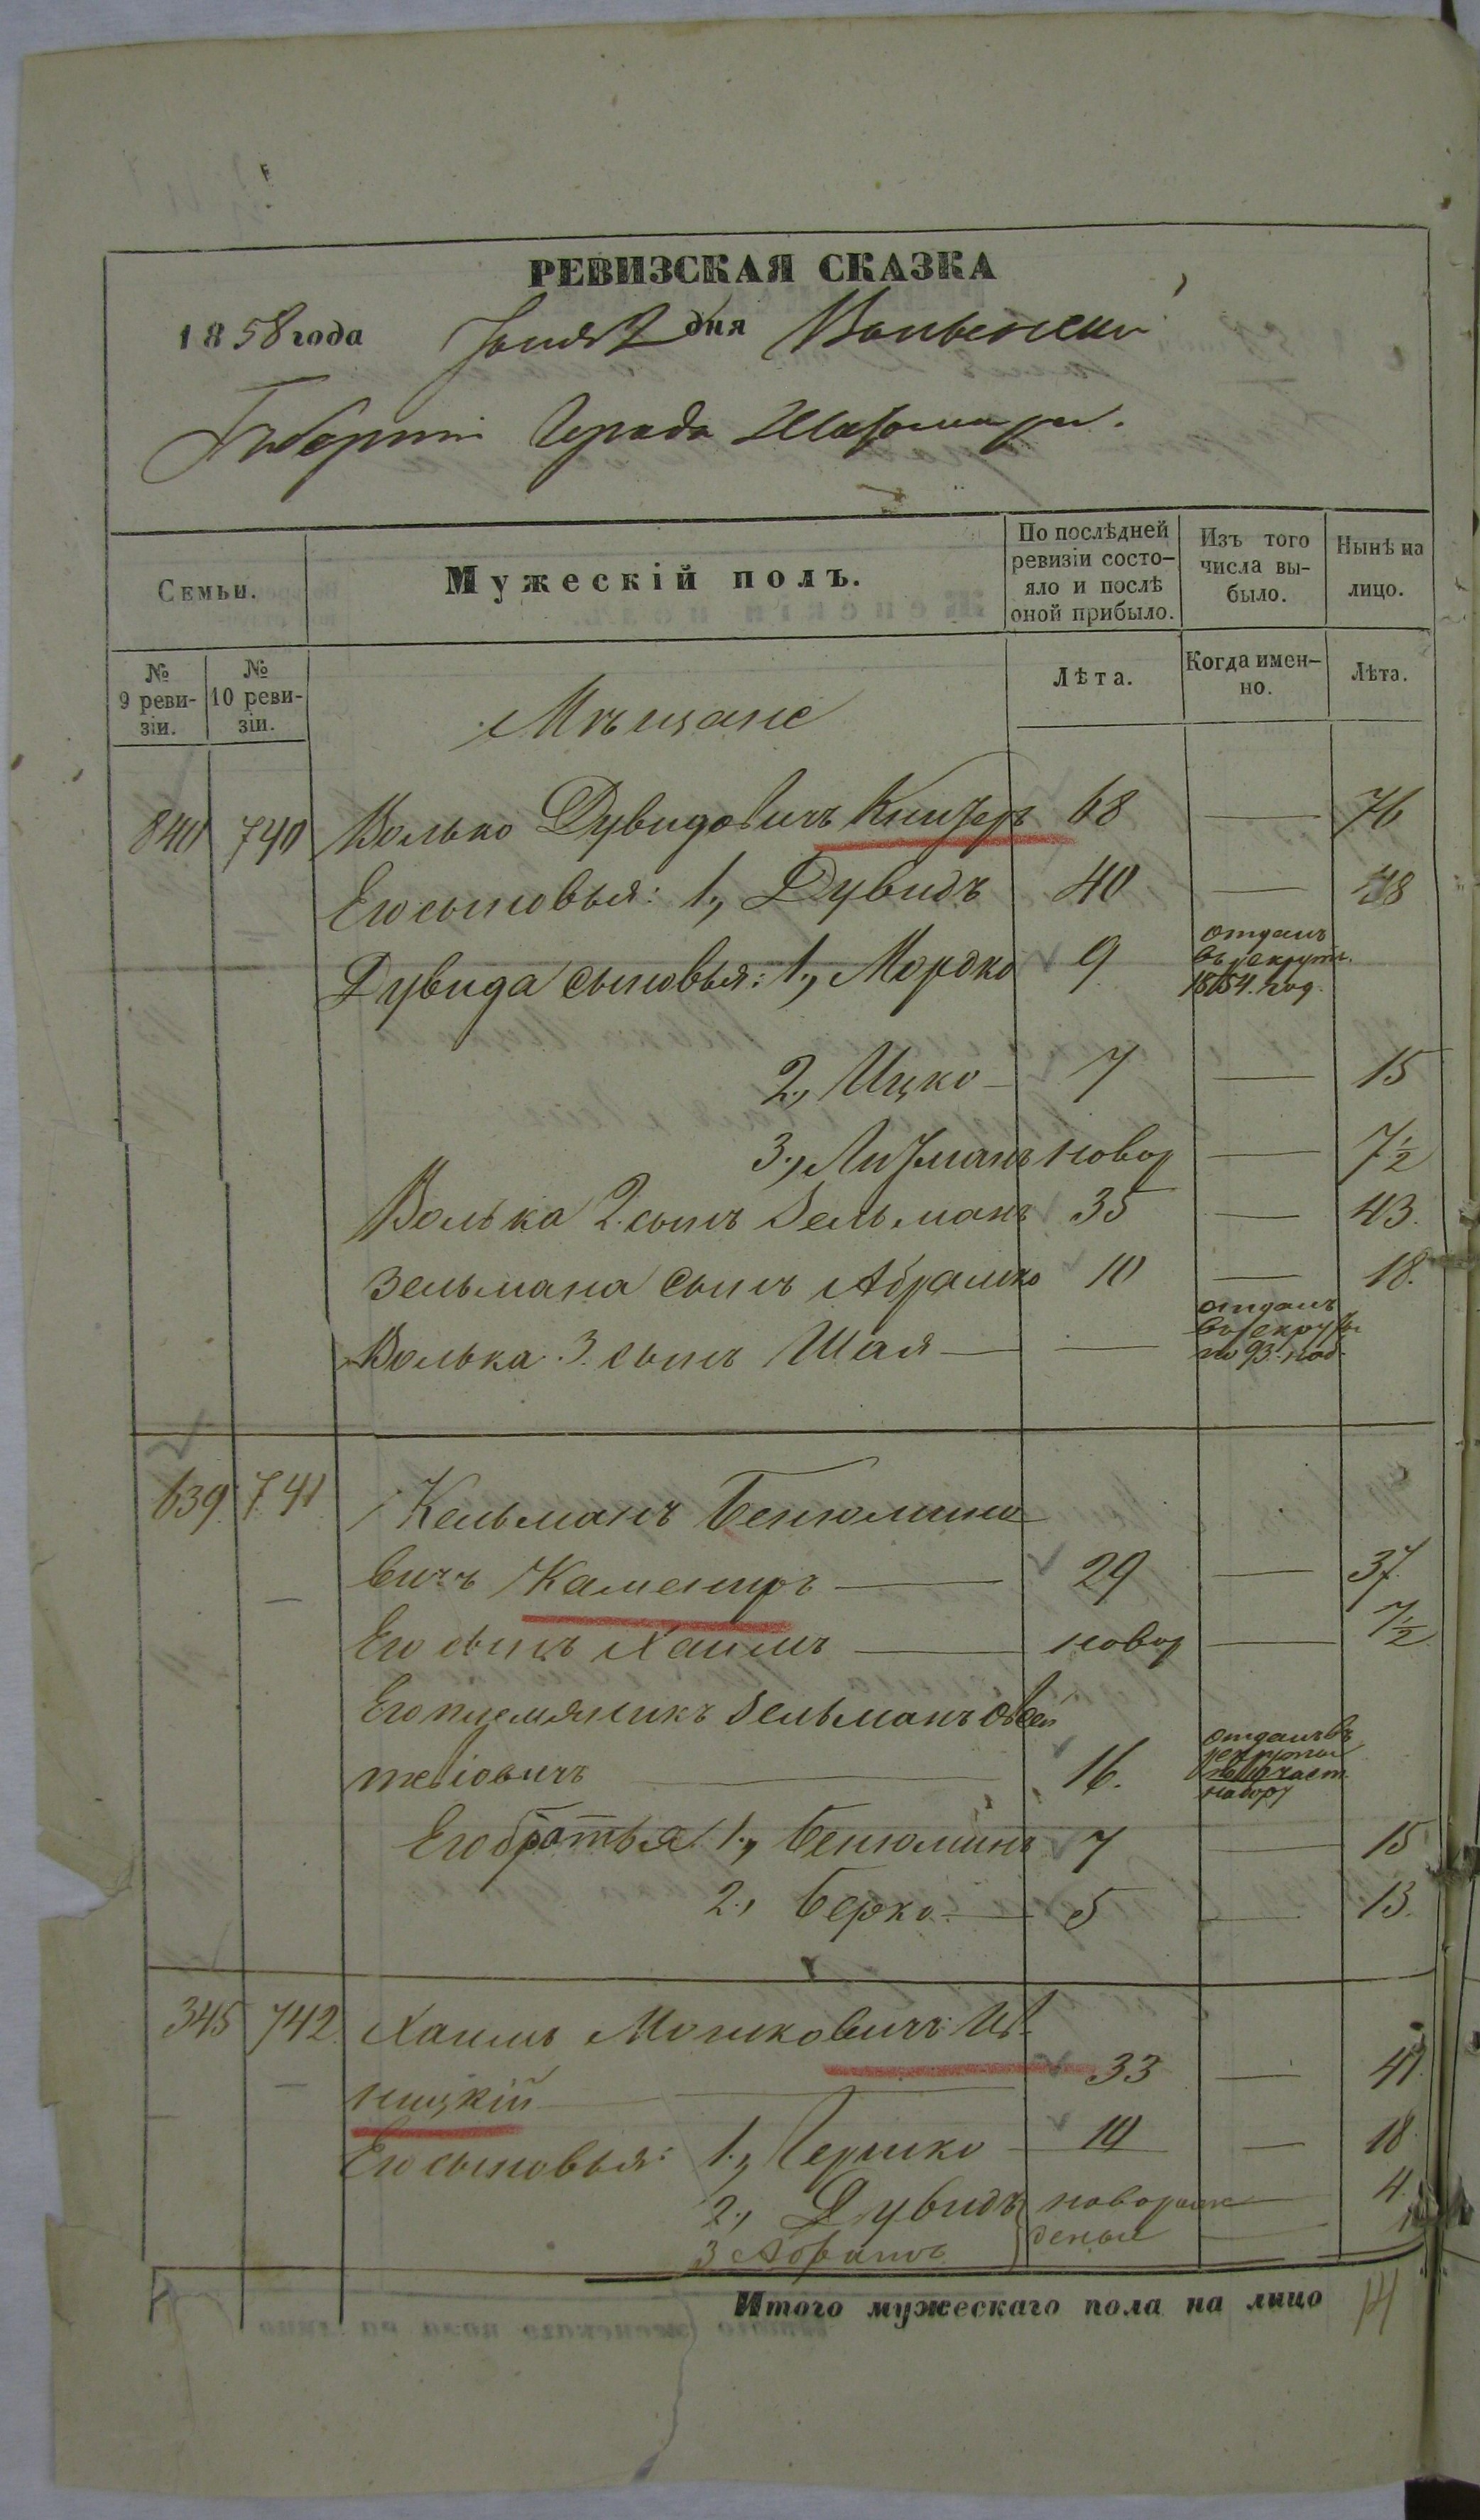 РЕВИЗСКАЯ СКАЗКА
1858 года Іюня 2 дня Волынской
Губерніи Града Житомира.
Семьи.
Мужескій полъ.
По послѣдней ревизіи состо-яло и послѣ оной прибыло.
Изъ того числа вы-было.
Нынѣ на лицо.
№ 9 реви-зіи.
№ 10 реви-зіи.
Лѣта.
Когда имен-но.
Лѣта.
Мѣщане
840 740 Волько Дувидовичъ 68 — 76
Его сыновья: 1., Дувидъ 40 — 48
Дувида сыновья: 1., Мордко 9 отданъ въ рекруты 1854. год.
2., Ицко — 7 — 15
3., Лузманъ новор — 7 1/2
Волька 2. сынъ Зельманъ 35 — 43.
Зельмана сынъ Абрамко 10 — 18.
Волька 3. сынъ Шая — — отданъ въ рекруты по 93. наб.
639 741 Кельманъ Бенюмино
вичъ Камениръ — 29 — 37.
Его сынъ Хаимъ — новор — 7 1/2
Его племяникъ Зельманъ Овсей
теіовичъ — 16. отданъ въ рекруты част. набору
Его братья 1., Бенюминъ 7 — 15
2., Берко — 5 — 13.
345 742. Хаимъ Мошковичъ Ив-
ницкій — 33 — 41.
Его сыновья: 1., Гершко — 10 — 18
2., Дувидъ новорож — 4.
3 Абрамъ деные — 1
Итого мужескаго пола на лицо 14